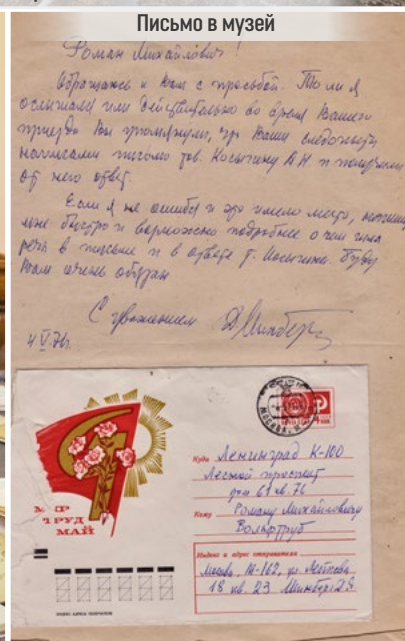 Письмо в музей
Роман Михайлович!
Обращаюсь к Вам с просьбой. То ли я
ослышался или действительно во время Вашего
приезда Вы упомянули, что Ваши следопыты
написали письмо тов. Косыгину А Н и получили
от него ответ.
Если я не ошибся и это имело место,
быстро и возможно подробнее о чем шла
речь в письме и в ответе т. Косыгина. Буду
Вам очень обязан
С уважением
4 V 76
МОСКВА
МИР
ТРУД
МАЙ
Куда Ленинград К-100
Лесной проспект
дом 61 кв. 76
Кому Роману Михайловичу
Вольфтруб
Индекс и адрес отправителя
Москва, М-162, ул.
18 кв. 23